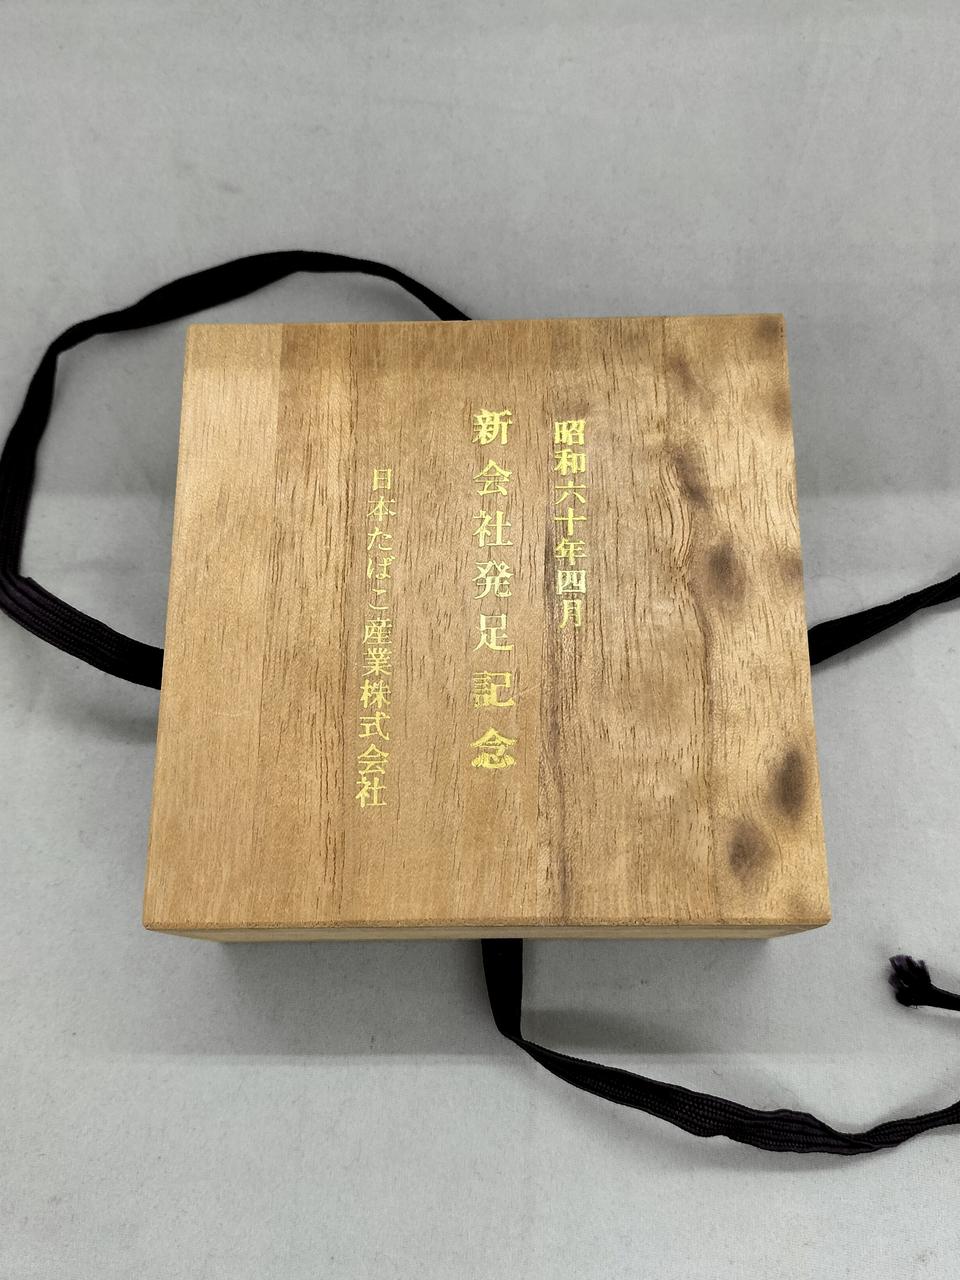 昭和六十年四月
新会社発足記念
日本たばこ産業株式会社